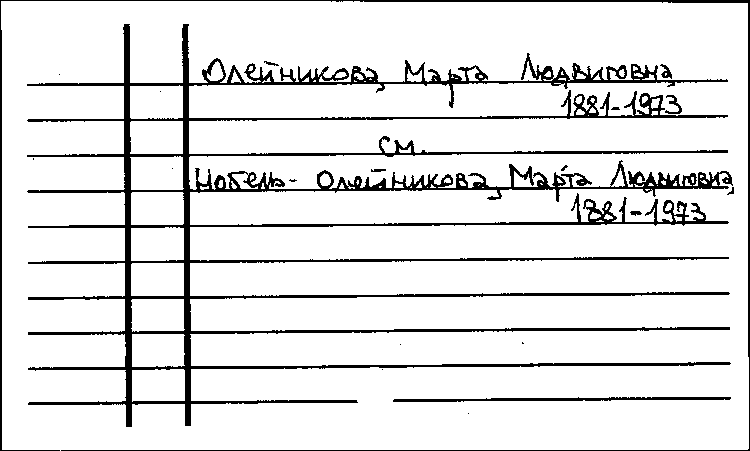 Олейникова, Марта Людвиговна,
1881-1973
см.
Нобель- Олейникова, Марта Людвиговна,
1881-1973